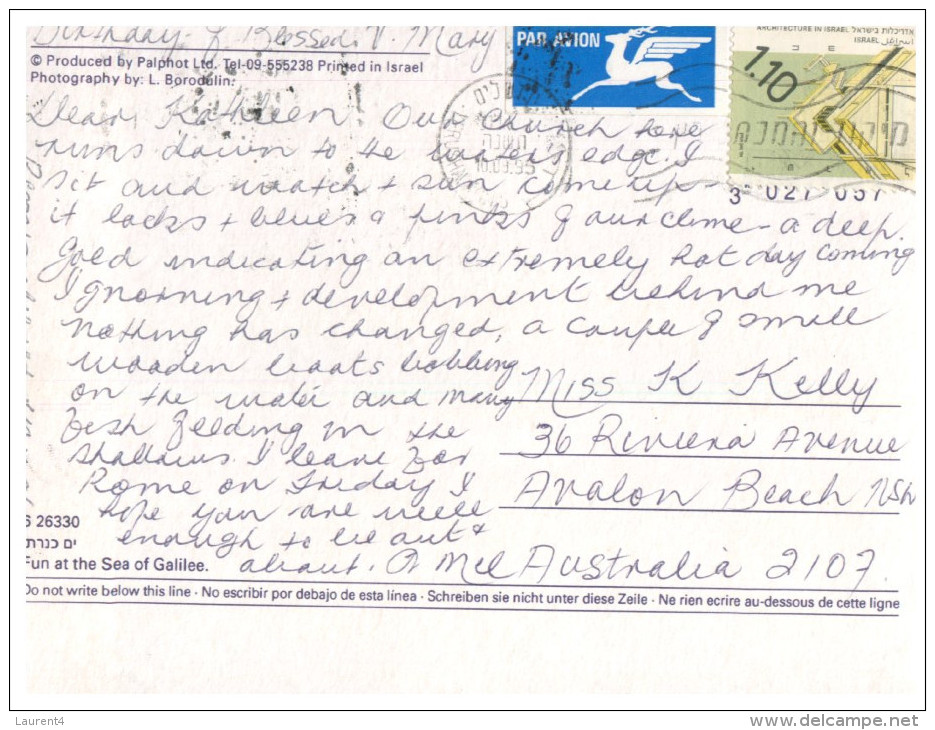 Birthday of Blessed V. Mary
© Produced by Palphot Ltd. Tel-09-555238 Printed in Israel
Photography by: L. Borodolin:
PAR AVION
ARCHITECTURE IN ISRAEL אדריכלות בישראל
ISRAEL
1.10
ירושלים
3 027 057
Dear Kathleen Our Church here
runs down to the waters edge. I
sit and watch + sun come up -
it lacks + blues & pinks of our clime - a deep
gold indicating an extremely hot day coming
Ignoring + development behind me
nothing has changed, a couple of small
wooden boats bobbing
on the water and many
fish feeding in the
shallows. I leave for
Rome on Friday I
hope you are well
enough to be out &
about.
Miss K Kelly
36 Riviera Avenue
Avalon Beach NSW
Australia 2107.
6 26330
ים כנרת
Fun at the Sea of Galilee.
Do not write below this line · No escribir por debajo de esta línea · Schreiben sie nicht unter diese Zeile · Ne rien ecrire au-dessous de cette ligne
Laurent4
www.delcampe.net